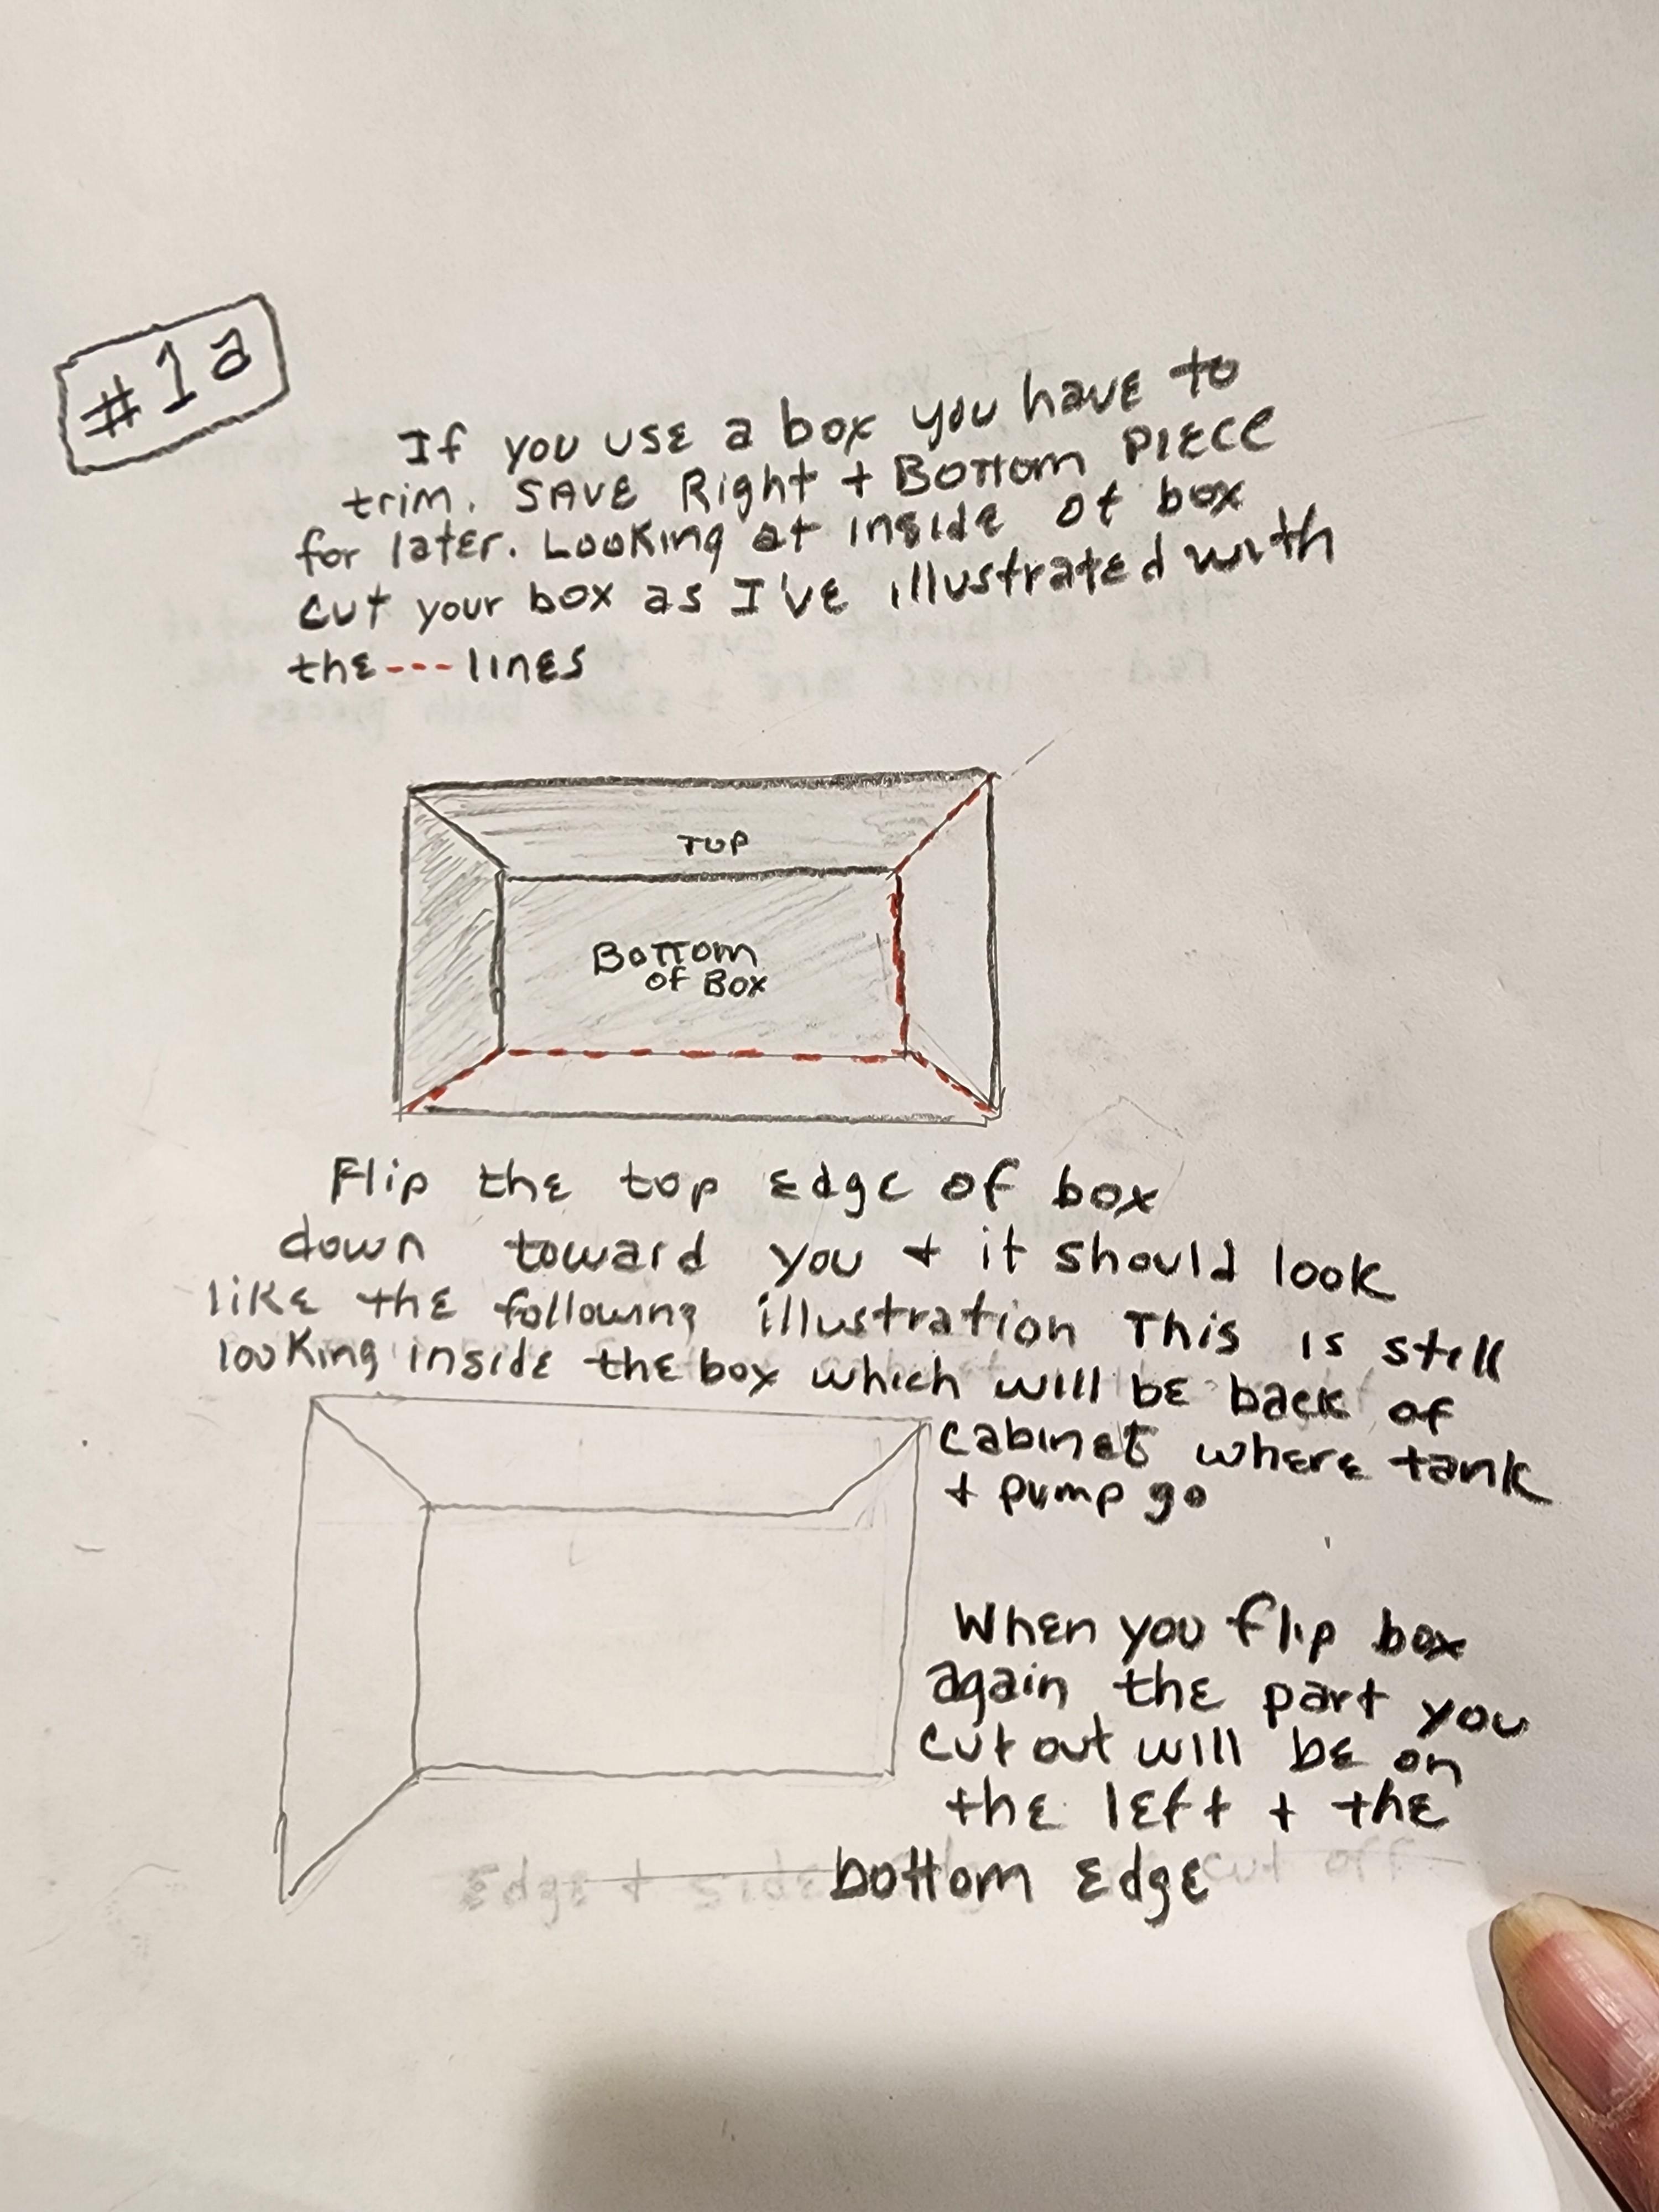 #1a
If you use a box you have to
trim. SAVE Right + Bottom PIECE
for later. Looking at inside of box
cut your box as I've illustrated with
the --- lines
TOP
Bottom
of Box
Flip the top edge of box
down toward you + it should look
like the following illustration This is still
looking inside the box which will be back of
cabinet where tank
+ pump go
When you flip box
again the part you
cut out will be on
the left + the
bottom edge